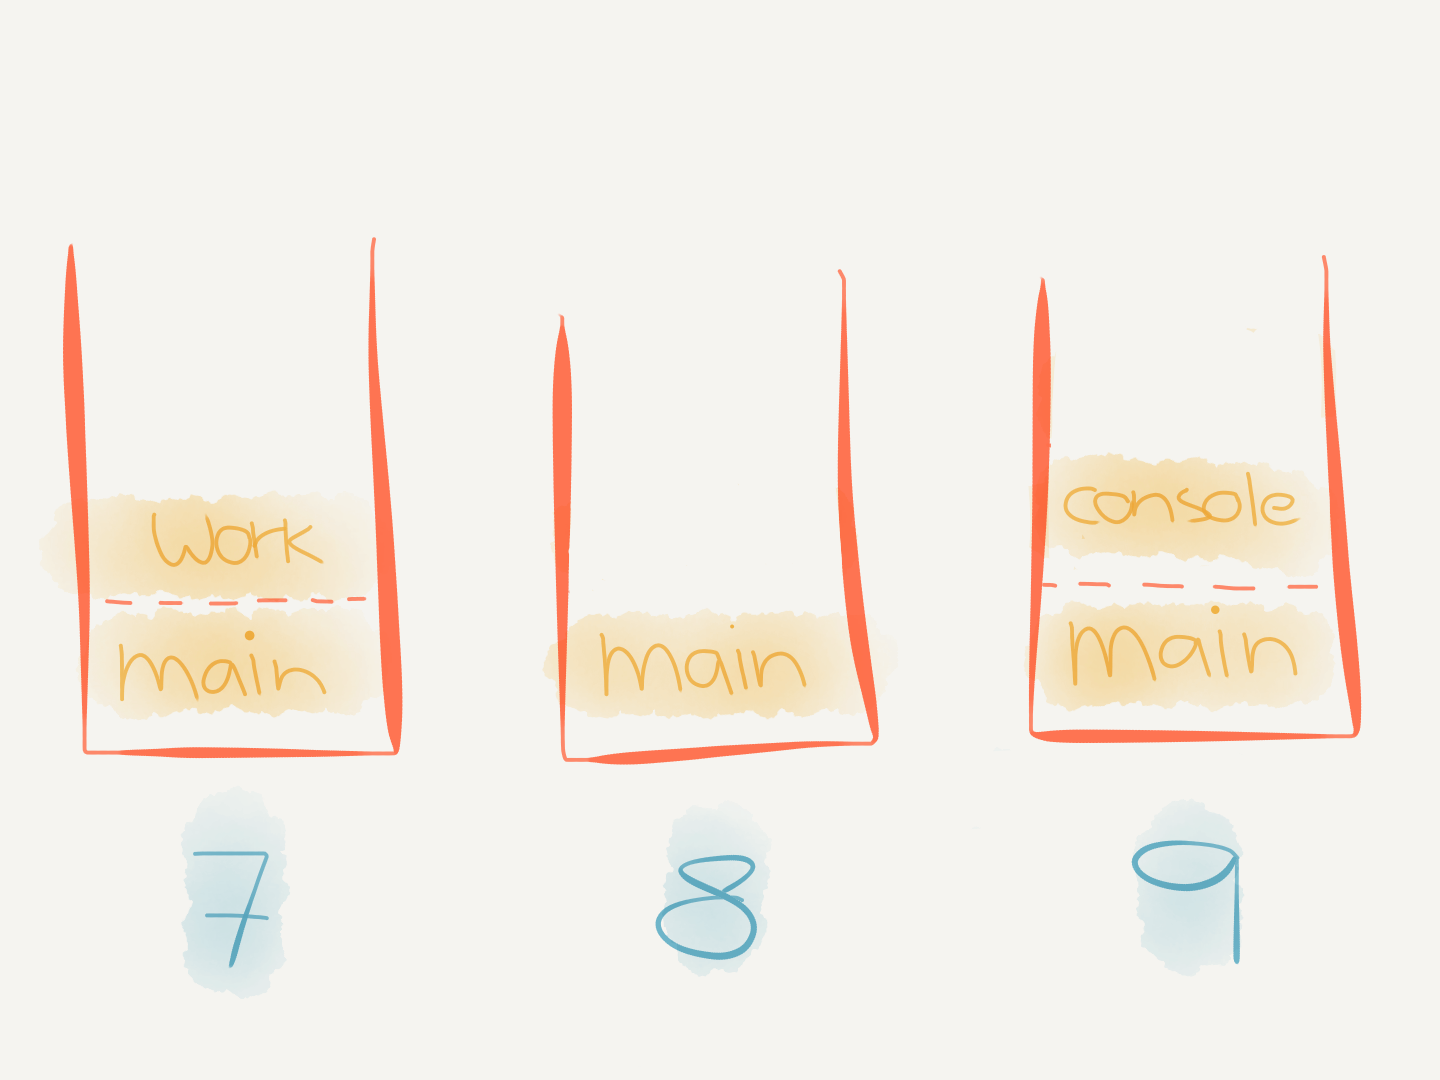 Work
main
7
main
8
console
main
9